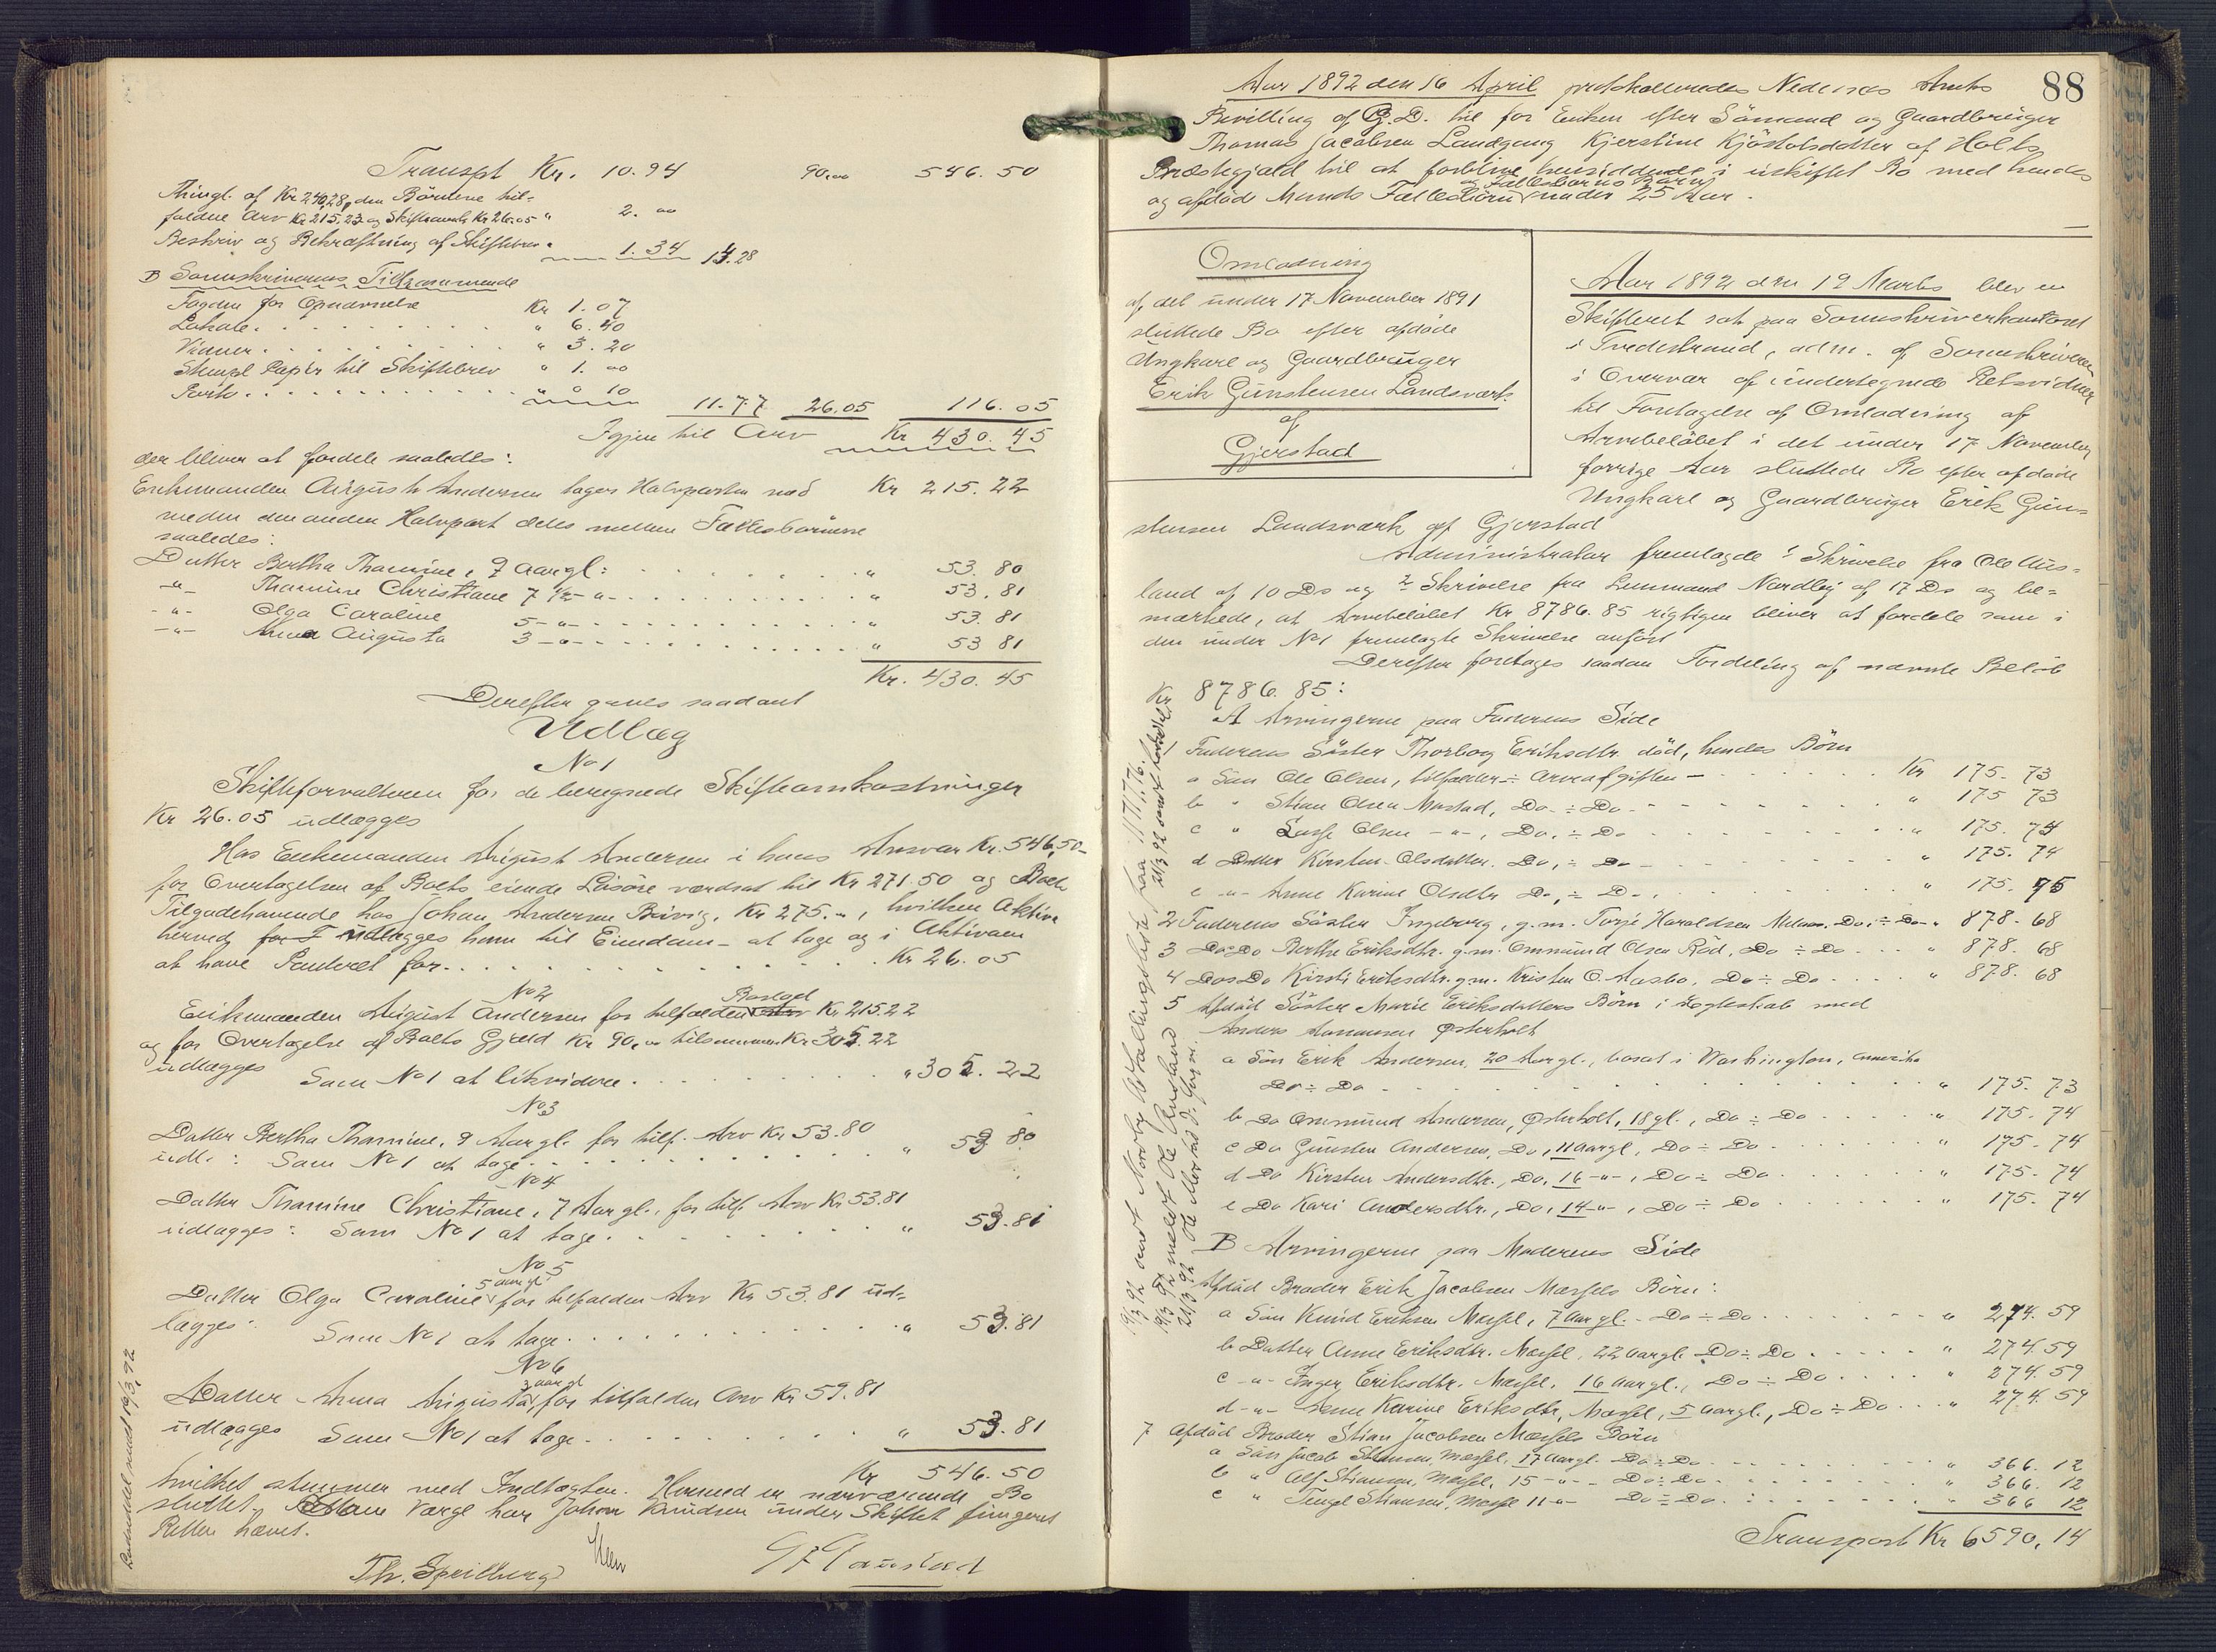 Transpt Kr. 10.94 90,00 546.50
Thingl. af Kr 240,28, den Börnene til-
faldne Arv Kr 215.23 og Skifteomk. Kr 26.05 " 2. 00
Beskriv og Bekræftning af Skiftebrev " 1.34 14.28
B Sorenskriverens Tilkommende
Dagdm for Opnævnelse Kr 1.07
Lokale " 6.40
Vidner " 3.20
Stempl. Papir til Skiftebrev " 1.00
Porto " 0 10 11.77 26.05 116.05
Igjen til Arv Kr 430.45
der bliver at fordele saaledes:
Enkemanden August Andersen tager Halvparten med Kr 215.22
medens den anden Halvpart deles mellem Fællesbörnene
saaledes:
Datter Bertha Thamine, 9 Aargl: " 53.80
-"- Thamine Christiane 7 1/2 -"- " 53.81
-"- Olga Caroline 5 -"- " 53.81
-"- Anna Augusta 3 -"- " 53 81
Kr. 430.45
Derefter gaves saadant
Udlæg
No 1
Skifteforvalteren for de beregnede Skifteomkostninger
Kr 26.05 udlægges
Hos Enkemanden August Andersen i hans Ansvar Kr. 546,50
for Overtagelsen af Boets eiende Lösöre værdsat til Kr 271.50 og Boets
Tilgodehavende hos Johan Andersen Bævig, Kr 275.-, hvilken Aktiva
herved for F udlægges ham til Eiendom - at tage og i Aktivaen
at have Panteret for Kr 26.05
No 2
Enkemanden August Andersen for tilfalden Arv Boslod Kr 215.22
og for Overtagelse af Boets Gjæld Kr 90,00 tilsammen Kr 305.22
udlægges Som No 1 at likvidere " 305.22
No 3
Datter Bertha Thamine, 9 Aargl. for tilf. Arv Kr 53.80
udl: Som No 1 at tage " 53 80
No 4
Datter Thamine Christiane, 7 Aargl., for tilf. Arv Kr 53.81
udlægges: Som No 1 at tage " 53.81
No 5
5 aargl
Datter Olga Caroline for tilfalden Arv Kr 53.81 ud-
lægges: Som No 1 at tage " 53.81
No 6
3 aargl
Datter Anna Augusta for tilfalden Arv Kr 53.81
udlægges Som No 1 at tage " 53.81
Kr 546.50
hvilket stemmer med Indtægten. Hermed er nærværende Bo
sluttet. Som Værge har Johan Knudsen under Skiftet fungeret
Retten hævet.
Th. Speilberg
88
Aar 1892 den 16 April protokolleredes Nedenæs Amts
Bevilling af G.D. til for Enken efter Sömand og Gaardbruger
Thomas Jacobsen Landgang Kjerstine Kjöstolsdatter af Holts
Præstegjæld til at forblive hensiddende i uskiftet Bo med hendes
og afdöde Mands Fællesbörn og Fællesbarns Börn under 25 Aar.
Omlodning
af det under 17 November 1891
sluttede Bo efter afdöde
Ungkarl og Gaardbruger
Erik Gunstensen Landsværk
af
Gjerstad
Aar 1892 den 19 Marts blev en
Skifteret sat paa Sorenskriverkontoret
i Tvedestrand, adm. af Sorenskriveren
i Overvær af undertegnede Retsvidner
til Foretagelse af Omlodning af
Arvebelöbet i det under 17 November
forrige Aar sluttede Bo efter afdöde
Ungkarl og Gaardbruger Erik Gun-
stensen Landsværk af Gjerstad
Administrator fremlagde 1 Skrivelse fra Ole Aus-
land af 10 Ds og 2 Skrivelse fra Lensmand Nordby af 17 Ds og be-
mærkede, at Arvebelöbet Kr 8786.85 rigtigen bliver at fordele som i
den under No 1 fremlagte Skrivelse anfört
Derefter foretoges saadan Fordeling af nævnte Belöb
Kr 8786.85:
A Arvingerne paa Faderens Side
1 Faderens Söster Thorborg Eriksdtr. död, hendes Börn
a Sön Ole Olsen, tilfalder ÷ Arveafgiften Kr 175.73
b " Stian Olsen Mostad, Do. ÷ Do " 175 73
c " Lasse Olsen -"-, Do. ÷ Do " 175.74
d Datter Kirsten Olsdatter, Do, ÷ Do " 175.74
e -"- Anne Karine Olsdtr Do, ÷ Do. " 175.75
2 Faderens Söster Ingeborg, g.m. Torje Haroldsen, Do. ÷ Do " 878.68
3 Do Do Berthe Eriksdtr. g.m. Ommund Olsen Röd, Do ÷ Do " 878.68
4 Do Do Kirsti Eriksdtr. g.m. Kristen O. Aasbo, Do ÷ Do " 878.68
5 Afdöd Söster Marie Eriksdatters Börn i Ægteskab med
Anders Aanonsen Østerholt
a Sön Erik Andersen, 20 Aargl., bosat i Washington, Amerika
Do ÷ Do " 175.73
b Do Ommund Andersen, Østerholt, 18 gl., Do ÷ Do " 175.74
c Do Gunsten Andersen, Do, 11 aargl, Do ÷ Do " 175.74
d Do Kirsten Andersdtr., Do, 16 -"-, Do ÷ Do " 175.74
e Do Kari Andersdtr., Do, 14 -"-, Do ÷ Do " 175.74
B Arvingerne paa Moderens Side
Afdöd Broder Erik Jacobsen Mæssels Börn:
a Sön Knud Eriksen Mæssel, 7 aargl. - Do ÷ Do " 274.59
b Datter Anne Eriksdtr. Mæssel, 22 aargl. Do ÷ Do " 274.59
c -"- Inger Eriksdtr. Mæssel, 16 aargl., Do ÷ Do " 274.59
d -"- Anne Karine Eriksdtr, Mæssel, 5 aargl., Do ÷ Do " 274.59
7 Afdöd Broder Stian Jacobsen Mæssels Börn
a Sön Jacob Stiansen, Mæssel, 17 aargl. Do ÷ Do " 366.12
b " Alf Stiansen, Mæssel, 15 -"- Do ÷ Do " 366.12
c " Tengel Stiansen, Mæssel 11 -"- Do ÷ Do " 366 12
Transport Kr 6590,14